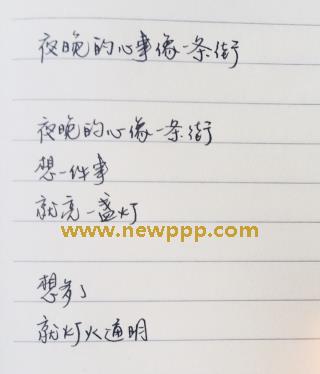 夜晚的心事像一条街
夜晚的心像一条街
想一件事
就亮一盏灯
www.newppp.com
想多了
就灯火通明